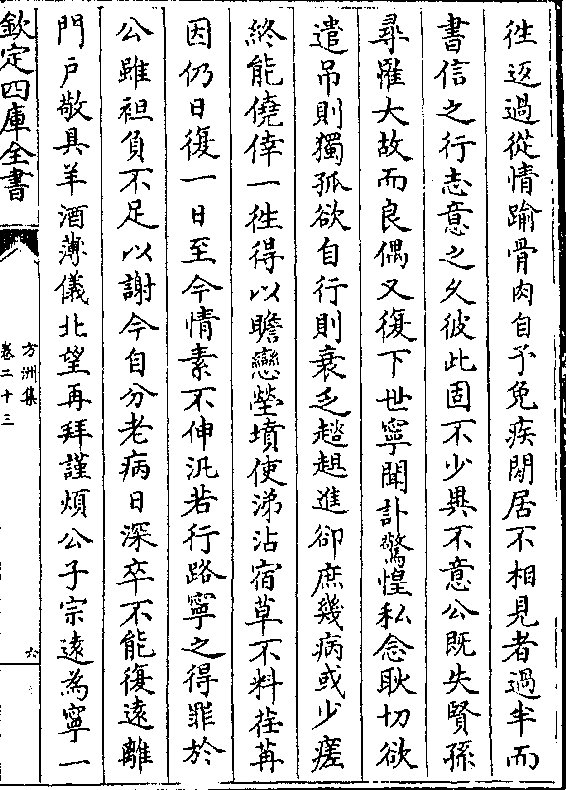 徃返過從情踰骨肉自予免疾閒居不相見者過半而
書信之行志意之夂彼此固不少異不意公既失賢孫
尋罹大故而良偶又復下世寧聞訃驚惶私念耿切欲
遣吊則獨孤欲自行則衰乏趦趄進卻庶幾病或少瘥
終能僥倖一徃得以瞻戀塋墳使涕沾宿草不料荏苒
因仍日復一日至今情素不伸汎若行路寧之得罪於
公雖袒負不足以謝今自分老病日深卒不能復遠離
門户敬具羊酒薄儀北望再拜謹煩公子宗遠為寧一
欽定四庫全書
方洲集
卷二十三
六